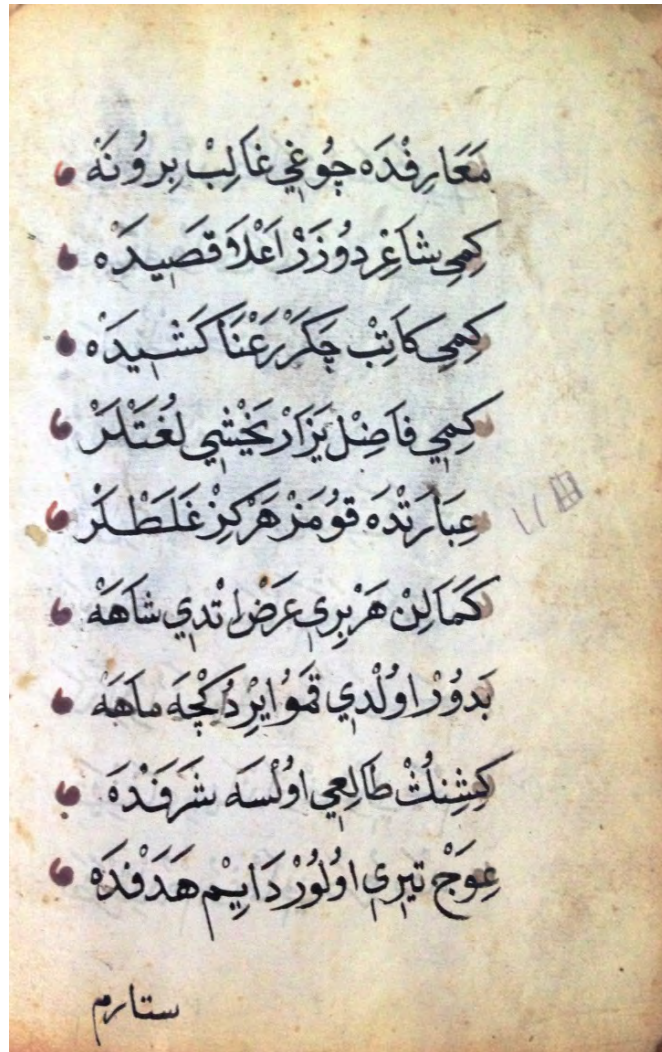 مَعَارِفْدَه چُوغِي غَالِبْ بِرُونَهْ
كِمِي شَاعِرْ دُوزَرْ اَعْلَا قَصِيدَهْ
كِمِي كَاتِبْ چَكَرْ رَعْنَا كَشِيدَهْ
كِمِي فَاضِلْ يَزَارْ يَخْشِي لُغَتْلَرْ
عِبَارَتْدَه قُومَزْ هَرْكِزْ غَلَطْلَرْ
كَمَالِنْ هَرْ بِرِي عَرْضْ اتْدِي شَاهَهْ
بَدُورْ اوُلْدِي قَمُو ايرْدُكْچَه مَاهَهْ
كِشِنُكْ طَالِعِي اوُلْسَه شَرَفْدَه
عِوَجْ تِيرِي اوُلُورْ دَايِمْ هَدَفْدَه
ستارم